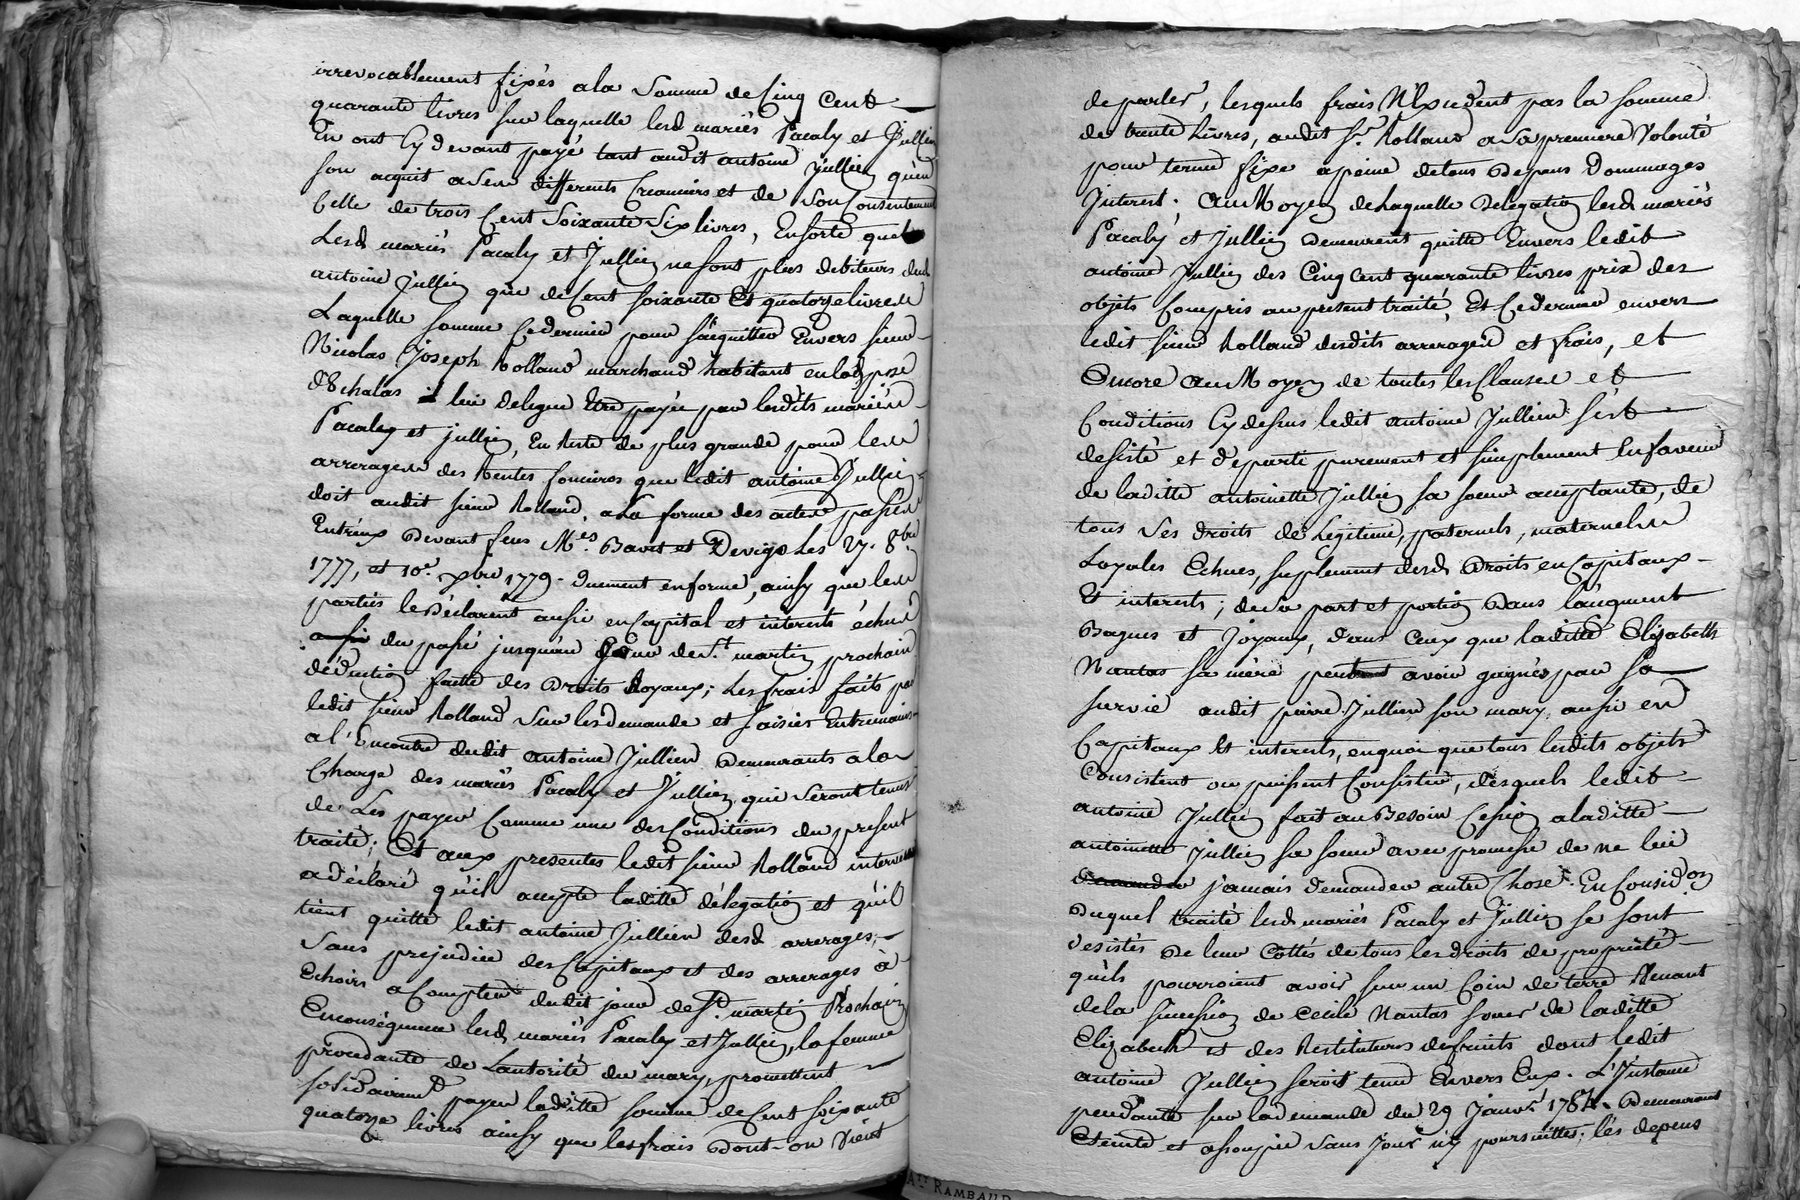 irrevocablement fixés a la somme de Cinq Cent
quarante livres sur laquelle lesd mariés Pacaly et Jullien
En ont Cy devant payé tant audit antoine Jullien qu'en
son acquit a ses differents Creanciers et de son Consentement
Celle de trois Cent Soixante Six livres, Ensorte que
Lesd mariés Pacaly et Jullien ne sont plus debiteurs dud
antoine Jullien que de Cent soixante Et quatorze livres
Laquelle somme Ce dernier pour s'acquitter Envers sieur
Nicolas Joseph Rolland marchand habitant en la
d'Echalas il leur delegue Etre payée par lesdits mariés
Pacaly et jullien, En reste de plus grande pour les
arrerages des Rentes foncieres que ledit antoine Jullien
doit audit sieur Rolland, a La forme des actes passés
Entr'eux Devant feus Mes. Bavet et Devigo Les 27. 8bre
1777, et 10e. xbre 1779. duement en forme, ainsy que les
parties le Déclarent aussi en Capital et interets échus
du passé jusqu'au jour de st. martin prochain
déduction faitte des Droits Royaux; Les frais faits par
ledit sieur Rolland Sur les demande et Saisies Entremains
a l'Encontre dudit antoine Jullien Demeurants a la
Charge des mariés Pacaly et Jullien, qui Seront tenus
de Les payer Comme une des Conditions du present
traité; Et aux presentes ledit sieur Rolland intervenant
a déclaré qu'il accepte laditte délegation et qu'il
tient quitte ledit antoine Jullien desd arrerages,
Sans prejudice des Capitaux et des arrerages à
Echoirs a Compter dudit jour de St. martin Prochain
En conséquence lesd. mariés Pacaly et Jullien, la femme
procedante de L'autorité du mary, promettent
solidairemt payer laditte somme de Cent soixante
quatorze livres ainsy que les frais Dont on Vient
de parler, lesquels frais N'Excedent pas la somme
de trente Livres, audit Sr. Rolland a Sa premiere Volonté
pour terme fixe a peine de tous Depens Dommages
Interest. Au Moyen de Laquelle Delegation lesd mariés
Pacaly et Jullien Demeurent quitte Envers ledit
antoine Jullien des Cinq Cent quarante livres prix des
objets Compris au present traité, Et Ce dernier envers
ledit sieur Rolland desdits arrerages et frais, et
Encore Au Moyen de toutes les Clauses et
Conditions Cy dessus ledit antoine Jullien s'est
desisté et departi purement et simplement En faveur
de laditte antoinette Jullien sa soeur acceptante, de
tous Ses droits de Legitime, paternels, maternels
Loyales Echues, suplement desd Droits en Capitaux
Et interests; de Sa part et portion Dans l'augment
Bagues et Joyaux, dans Ceux que laditte Elizabeth
Nantas sa mère peut avoir gagnés par Sa
survie audit pierre Jullien son mary, aussi en
Capitaux Et interests, en quoi que tous lesdits objets
Consistent ou puissent Consister, desquels ledit
antoine Jullien fait au Besoin Cession a laditte
antoinette Jullien sa soeur avec promesse de ne lui
demander jamais demander autre Chose. En Considon
Duquel traité lesd mariés Pacaly et Jullien se sont
desistés De leur Cottés de tous les droits de proprieté
qu'ils pourroient avoir sur un Coin de terre Venant
de la succession de Cecile Nantas soeur de laditte
Elizabeth et des Restitutions de fruits dont ledit
antoine Jullien seroit tenu Envers Eux. L'Instance
pendante sur la demande du 29 Janvr. 1784. Demeurant
Eteinte et assoupie sans poursuittes, les depens
Att RAMBAUD